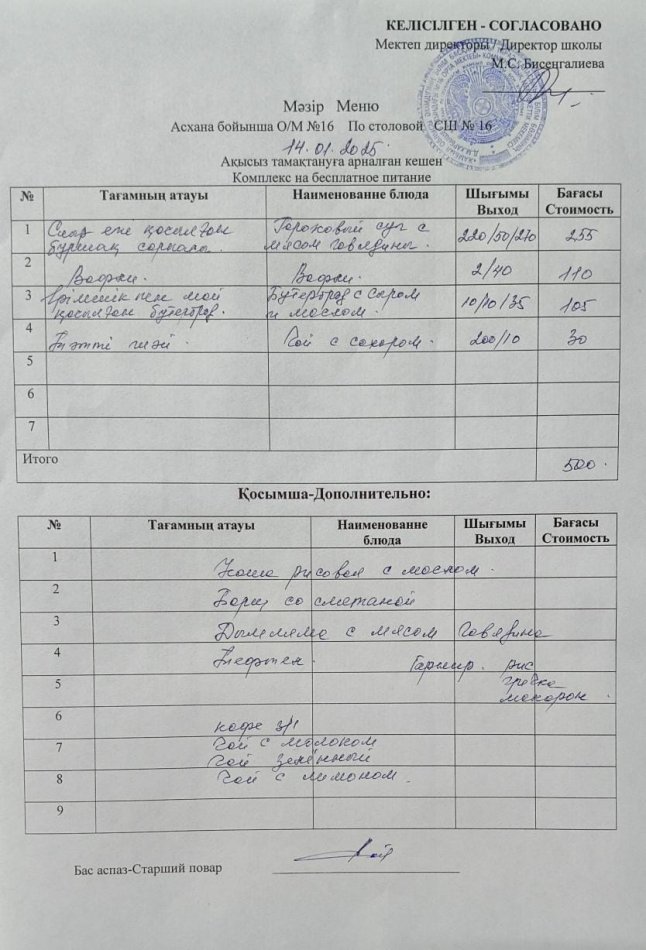 КЕЛІСІЛГЕН - СОГЛАСОВАНО
Мектеп директоры / Директор школы
М.С. Бисенгалиева
Мәзір Меню
Асхана бойынша О/М №16 По столовой СШ № 16
14.01.2025
Ақысыз тамақтануға арналған кешен
Комплекс на бесплатное питание
№ Тағамның атауы Наименование блюда Шығымы Выход Бағасы Стоимость
1 Сиыр еті қосылған бұршақ сорпасы. Гороховый суп с мясом говядины. 220/50/270 255
2 Вафли. Вафли. 2/40 110
3 Ірімшік пен май қосылған бутерброд. Бутерброд с сыром и маслом. 10/10/35 105
4 Тәтті шәй. Чай с сахаром. 200/10 30
5
6
7
Итого 500.
Қосымша-Дополнительно:
№ Тағамның атауы Наименование блюда Шығымы Выход Бағасы Стоимость
1 Каша рисовая с маслом.
2 Борщ со сметаной
3 Дымляма с мясом говядина
4 Тефтели. Гарнир. рис
5 гречка
макарон.
6 кофе 3/1
7 Чай с молоком
Чай зелённый
8 Чай с лимоном.
9
Бас аспаз-Старший повар